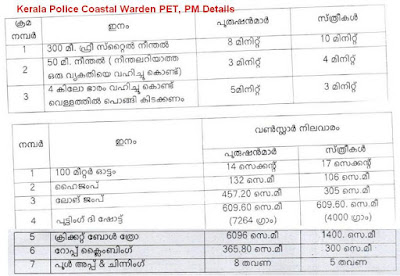 Kerala Police Coastal Warden PET, PM Details
ക്രമ നമ്പർ ഇനം പുരുഷൻമാർ സ്ത്രീകൾ
1 300 മീ. ഫ്രീ സ്റ്റൈൽ നീന്തൽ 8 മിനിറ്റ് 10 മിനിറ്റ്
2 50 മീ. നീന്തൽ ( നീന്തലറിയാത്ത ഒരു വ്യക്തിയെ വഹിച്ചു കൊണ്ട്) 3 മിനിറ്റ് 4 മിനിറ്റ്
3 4 കിലോ ഭാരം വഹിച്ചു കൊണ്ട് വെള്ളത്തിൽ പൊങ്ങി കിടക്കണം 5മിനിറ്റ് 3 മിനിറ്റ്
നമ്പർ ഇനം വൺസ്റ്റാർ നിലവാരം
പുരുഷൻമാർ സ്ത്രീകൾ
1 100 മീറ്റർ ഓട്ടം 14 സെക്കന്റ് 17 സെക്കന്റ്
2 ഹൈജംപ് 132 സെ.മീ 106 സെ.മീ
3 ലോങ് ജംപ് 457.20 സെ.മീ 305 സെ.മീ
4 പുട്ടിംഗ് ദി ഷോട്ട് 609.60 സെ.മീ 609.60. സെ.മീ
(7264 ഗ്രാം) (4000 ഗ്രാം)
5 ക്രിക്കറ്റ് ബോൾ ത്രോ 6096 സെ.മീ 1400. സെ.മീ
6 റോപ്പ് ക്ലൈംബിംഗ് 365.80 സെ.മീ 300 സെ.മീ
7 പുൾ അപ്പ് & ചിന്നിംഗ് 8 തവണ 5 തവണ